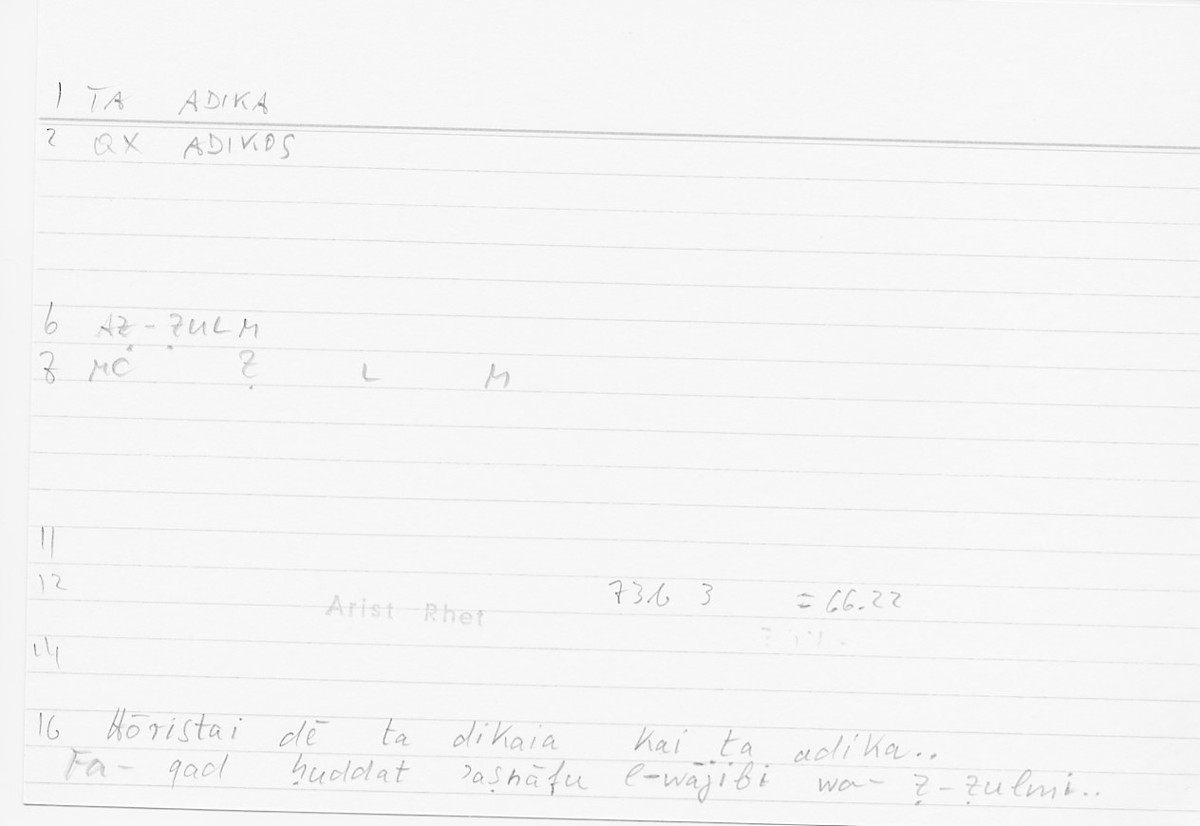 1 TA ADIKA
2 QX ADIKOS
6 AẒ-ẒULM
7 MC Ẓ L M
11
12 73b 3 = 66.22
Arist Rhet
14
16 Hōristai dē ta dikaia kai ta adika..
Fa-qad ḥuddat ʾaṣnāfu l-wājibi wa-ẓ-ẓulmi..